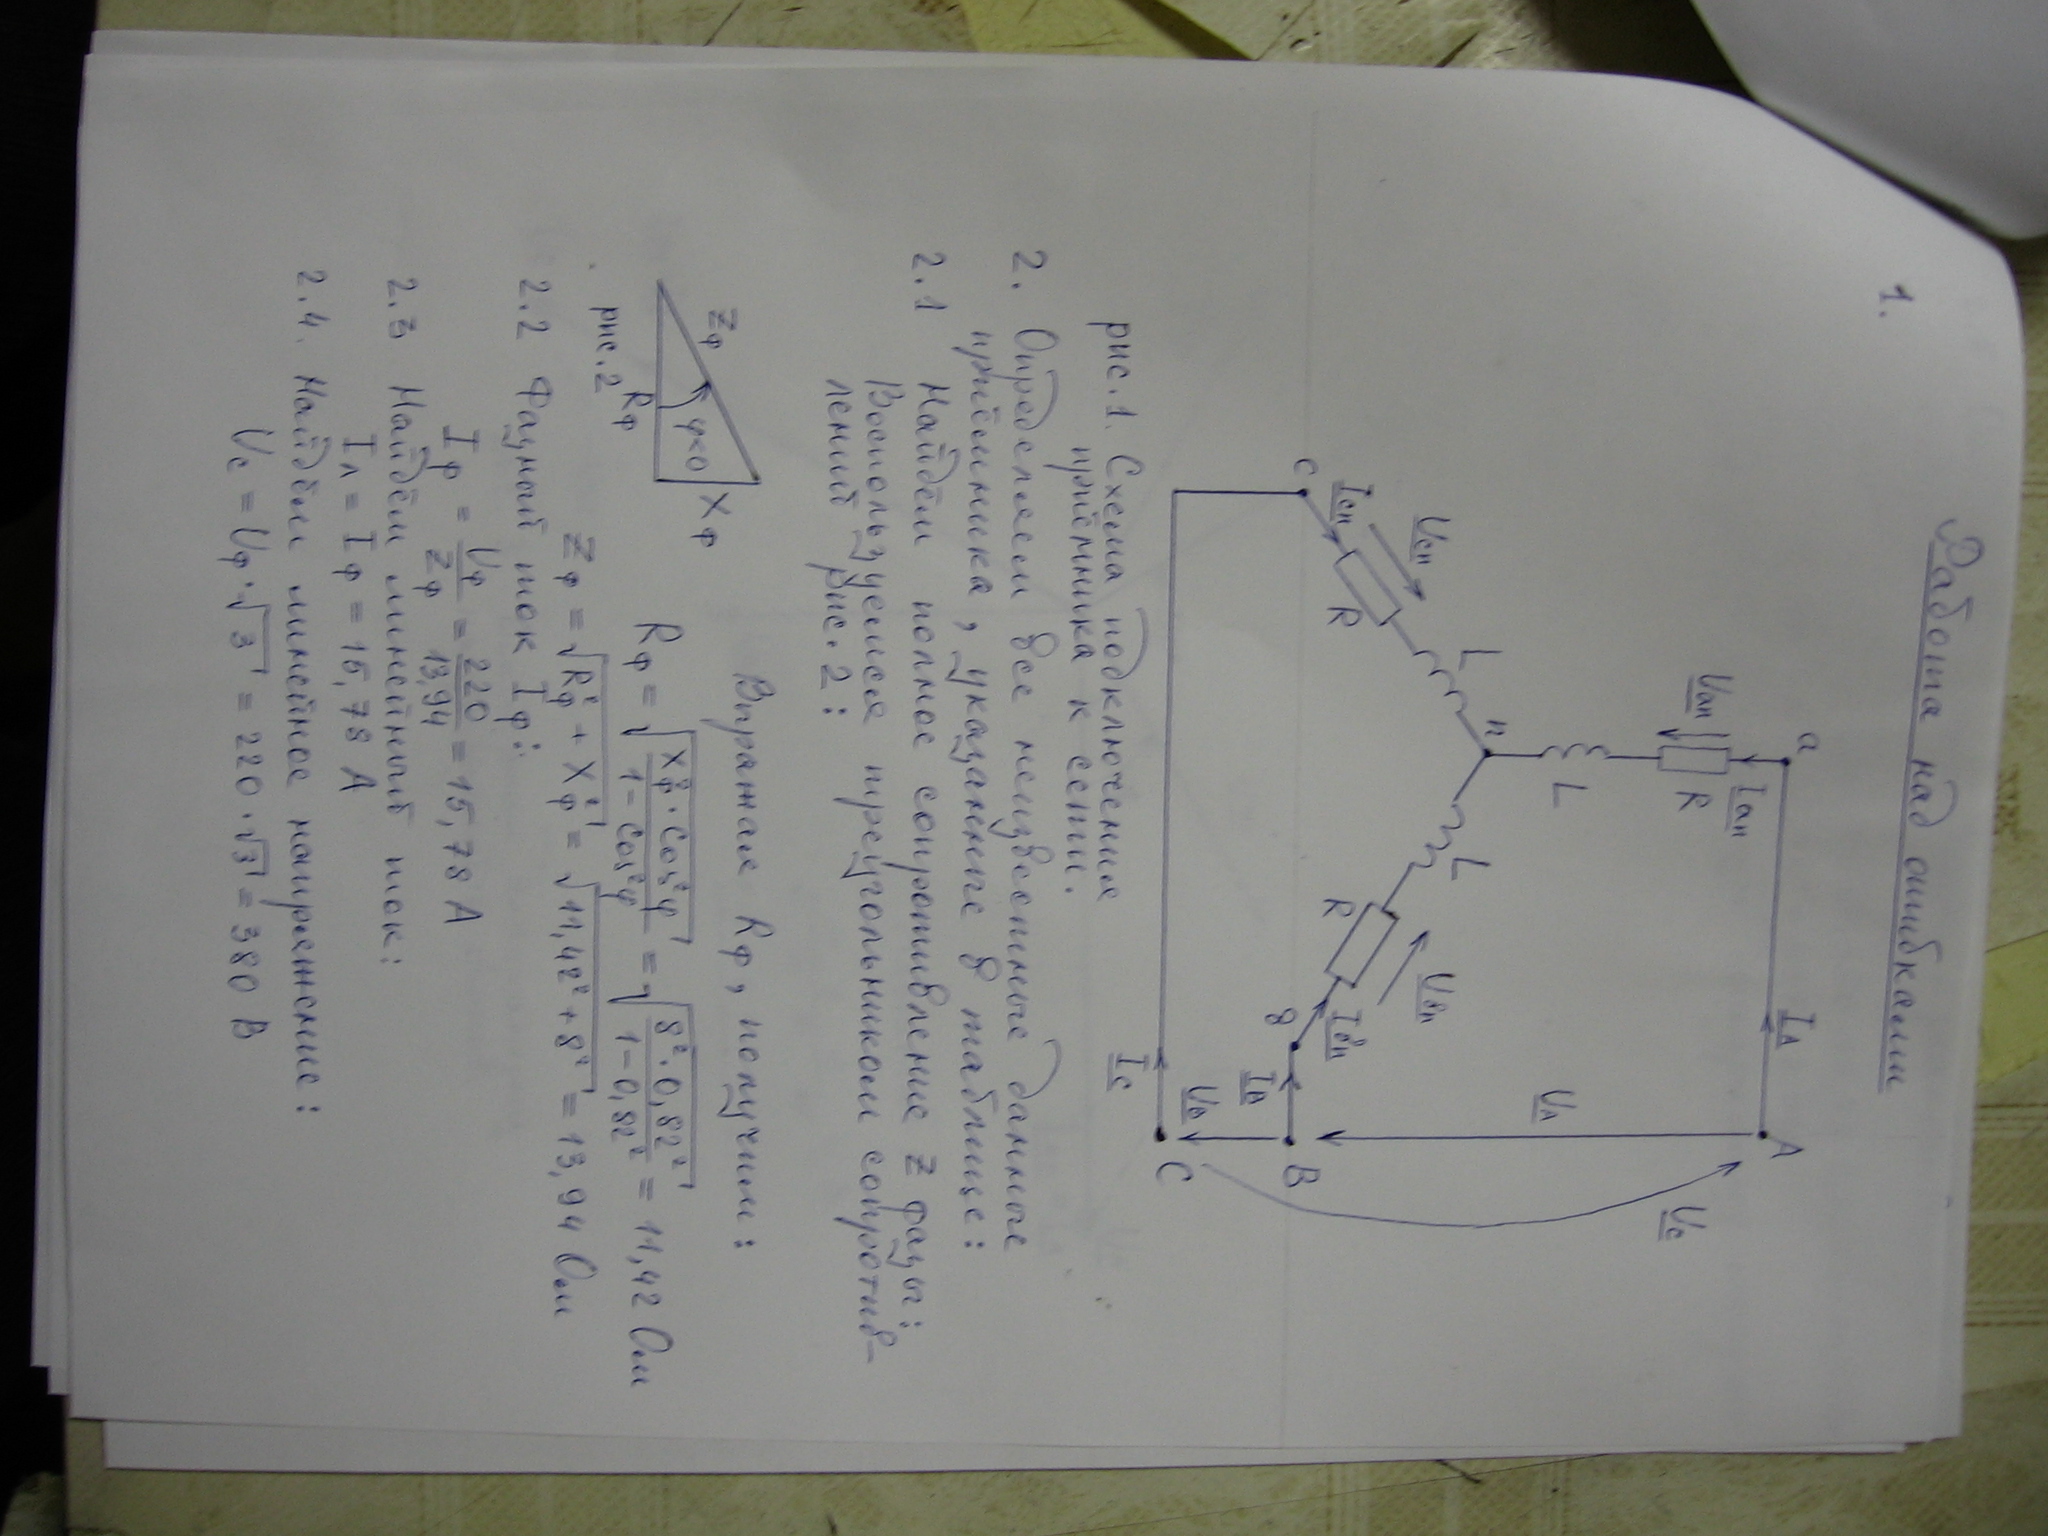 Работа над ошибками
1.
a
I_A
A
I_an
U_an
R
L
U_A
U_C
n
L
L
U_cn
I_cn
R
R
U_вn
I_вn
c
в
I_B
B
U_B
I_C
C
рис. 1. Схема подключения
приёмника к сети.
2. Определяем все неизвестные данные
приёмника, указанные в таблице:
2.1 Найдём полное сопротивление Z фазы:
Воспользуемся треугольником сопротив-
лений рис. 2:
Zф
φ<0
Xф
Rф
рис. 2
Выражая Rф, получим:
Rф = √(Xф² · Cos²φ / 1 − Cos²φ) = √(8² · 0,82² / 1 − 0,82²) = 11,42 Ом
Zф = √(Rф² + Xф²) = √(11,42² + 8²) = 13,94 Ом
2.2 Фазный ток Iф:
Iф = Uф / Zф = 220 / 13,94 = 15,78 А
2.3 Найдём линейный ток:
Iл = Iф = 15,78 А
2.4. Найдём линейное напряжение:
Uс = Uф · √3 = 220 · √3 = 380 В